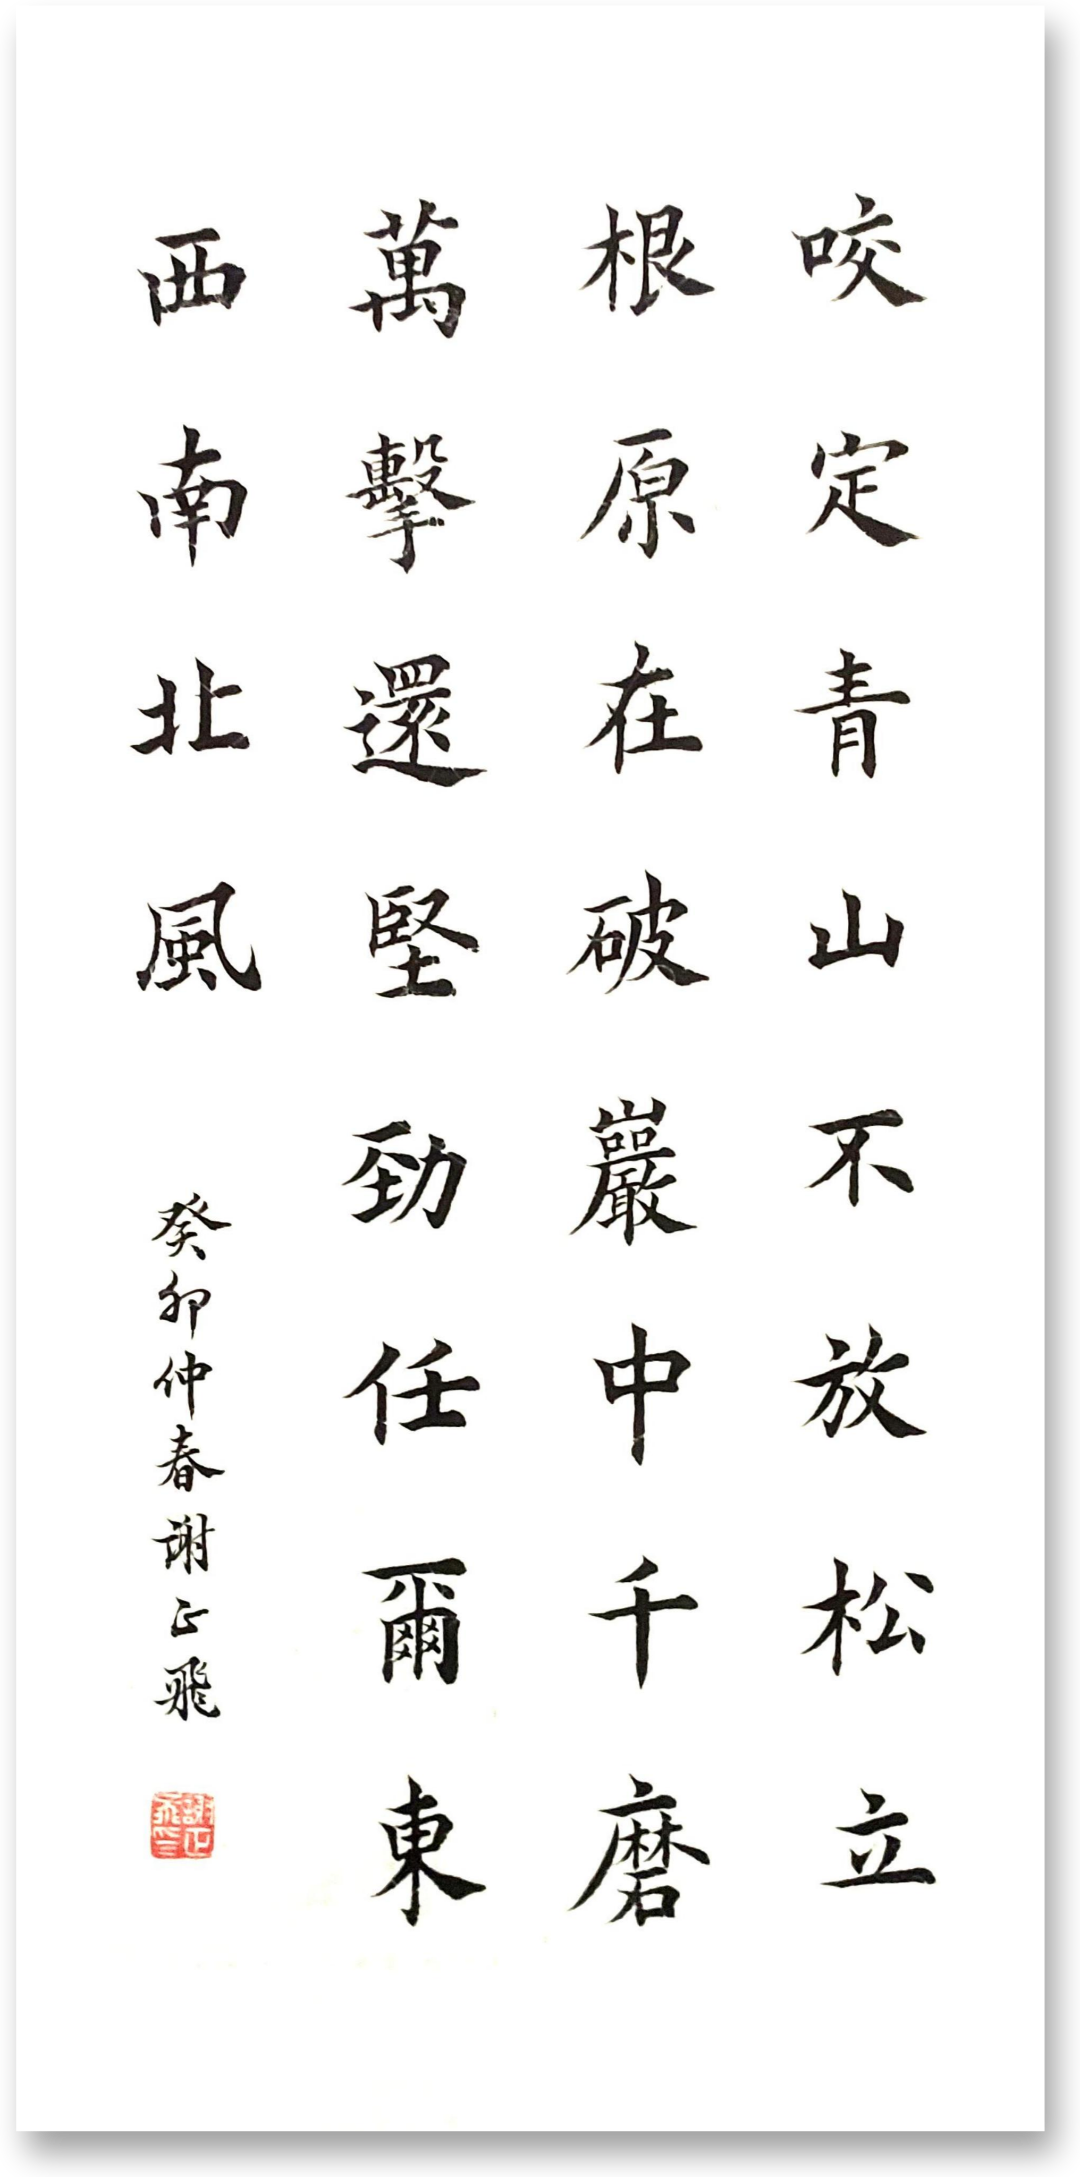 咬定青山不放松立
根原在破巖中千磨
萬擊還堅勁任爾東
西南北風
癸卯仲春谢正飛